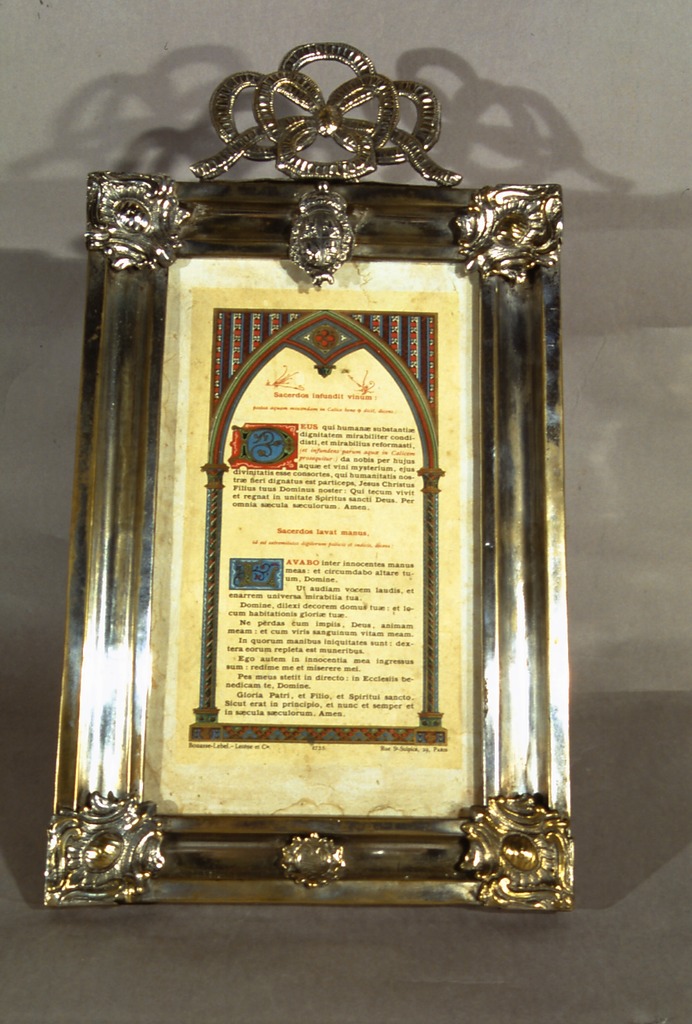 Sacerdos infundit vinum:
postea aquam miscendam in Calice bene ✠ dicit, dicens:
DEUS qui humanæ substantiæ
dignitatem mirabiliter condi-
disti, et mirabilius reformasti,
(et infundens parum aquæ in Calicem
prosequitur:) da nobis per hujus
aquæ et vini mysterium, ejus
divinitatis esse consortes, qui humanitatis nos-
træ fieri dignatus est particeps, Jesus Christus
Filius tuus Dominus noster: Qui tecum vivit
et regnat in unitate Spiritus sancti Deus. Per
omnia sæcula sæculorum. Amen.
Sacerdos lavat manus,
id est extremitates digitorum pollicis et indicis, dicens:
LAVABO inter innocentes manus
meas: et circumdabo altare tu-
um, Domine.
Ut audiam vocem laudis, et
enarrem universa mirabilia tua.
Domine, dilexi decorem domus tuæ: et lo-
cum habitationis gloriæ tuæ.
Ne perdas cum impiis, Deus, animam
meam: et cum viris sanguinum vitam meam.
In quorum manibus iniquitates sunt: dex-
tera eorum repleta est muneribus.
Ego autem in innocentia mea ingressus
sum: redime me et miserere mei.
Pes meus stetit in directo: in Ecclesiis be-
nedicam te, Domine.
Gloria Patri, et Filio, et Spiritui sancto.
Sicut erat in principio, et nunc et semper et
in sæcula sæculorum. Amen.
Bouasse-Lebel.-Lesêne et Cie. Rue St-Sulpice, 29, Paris